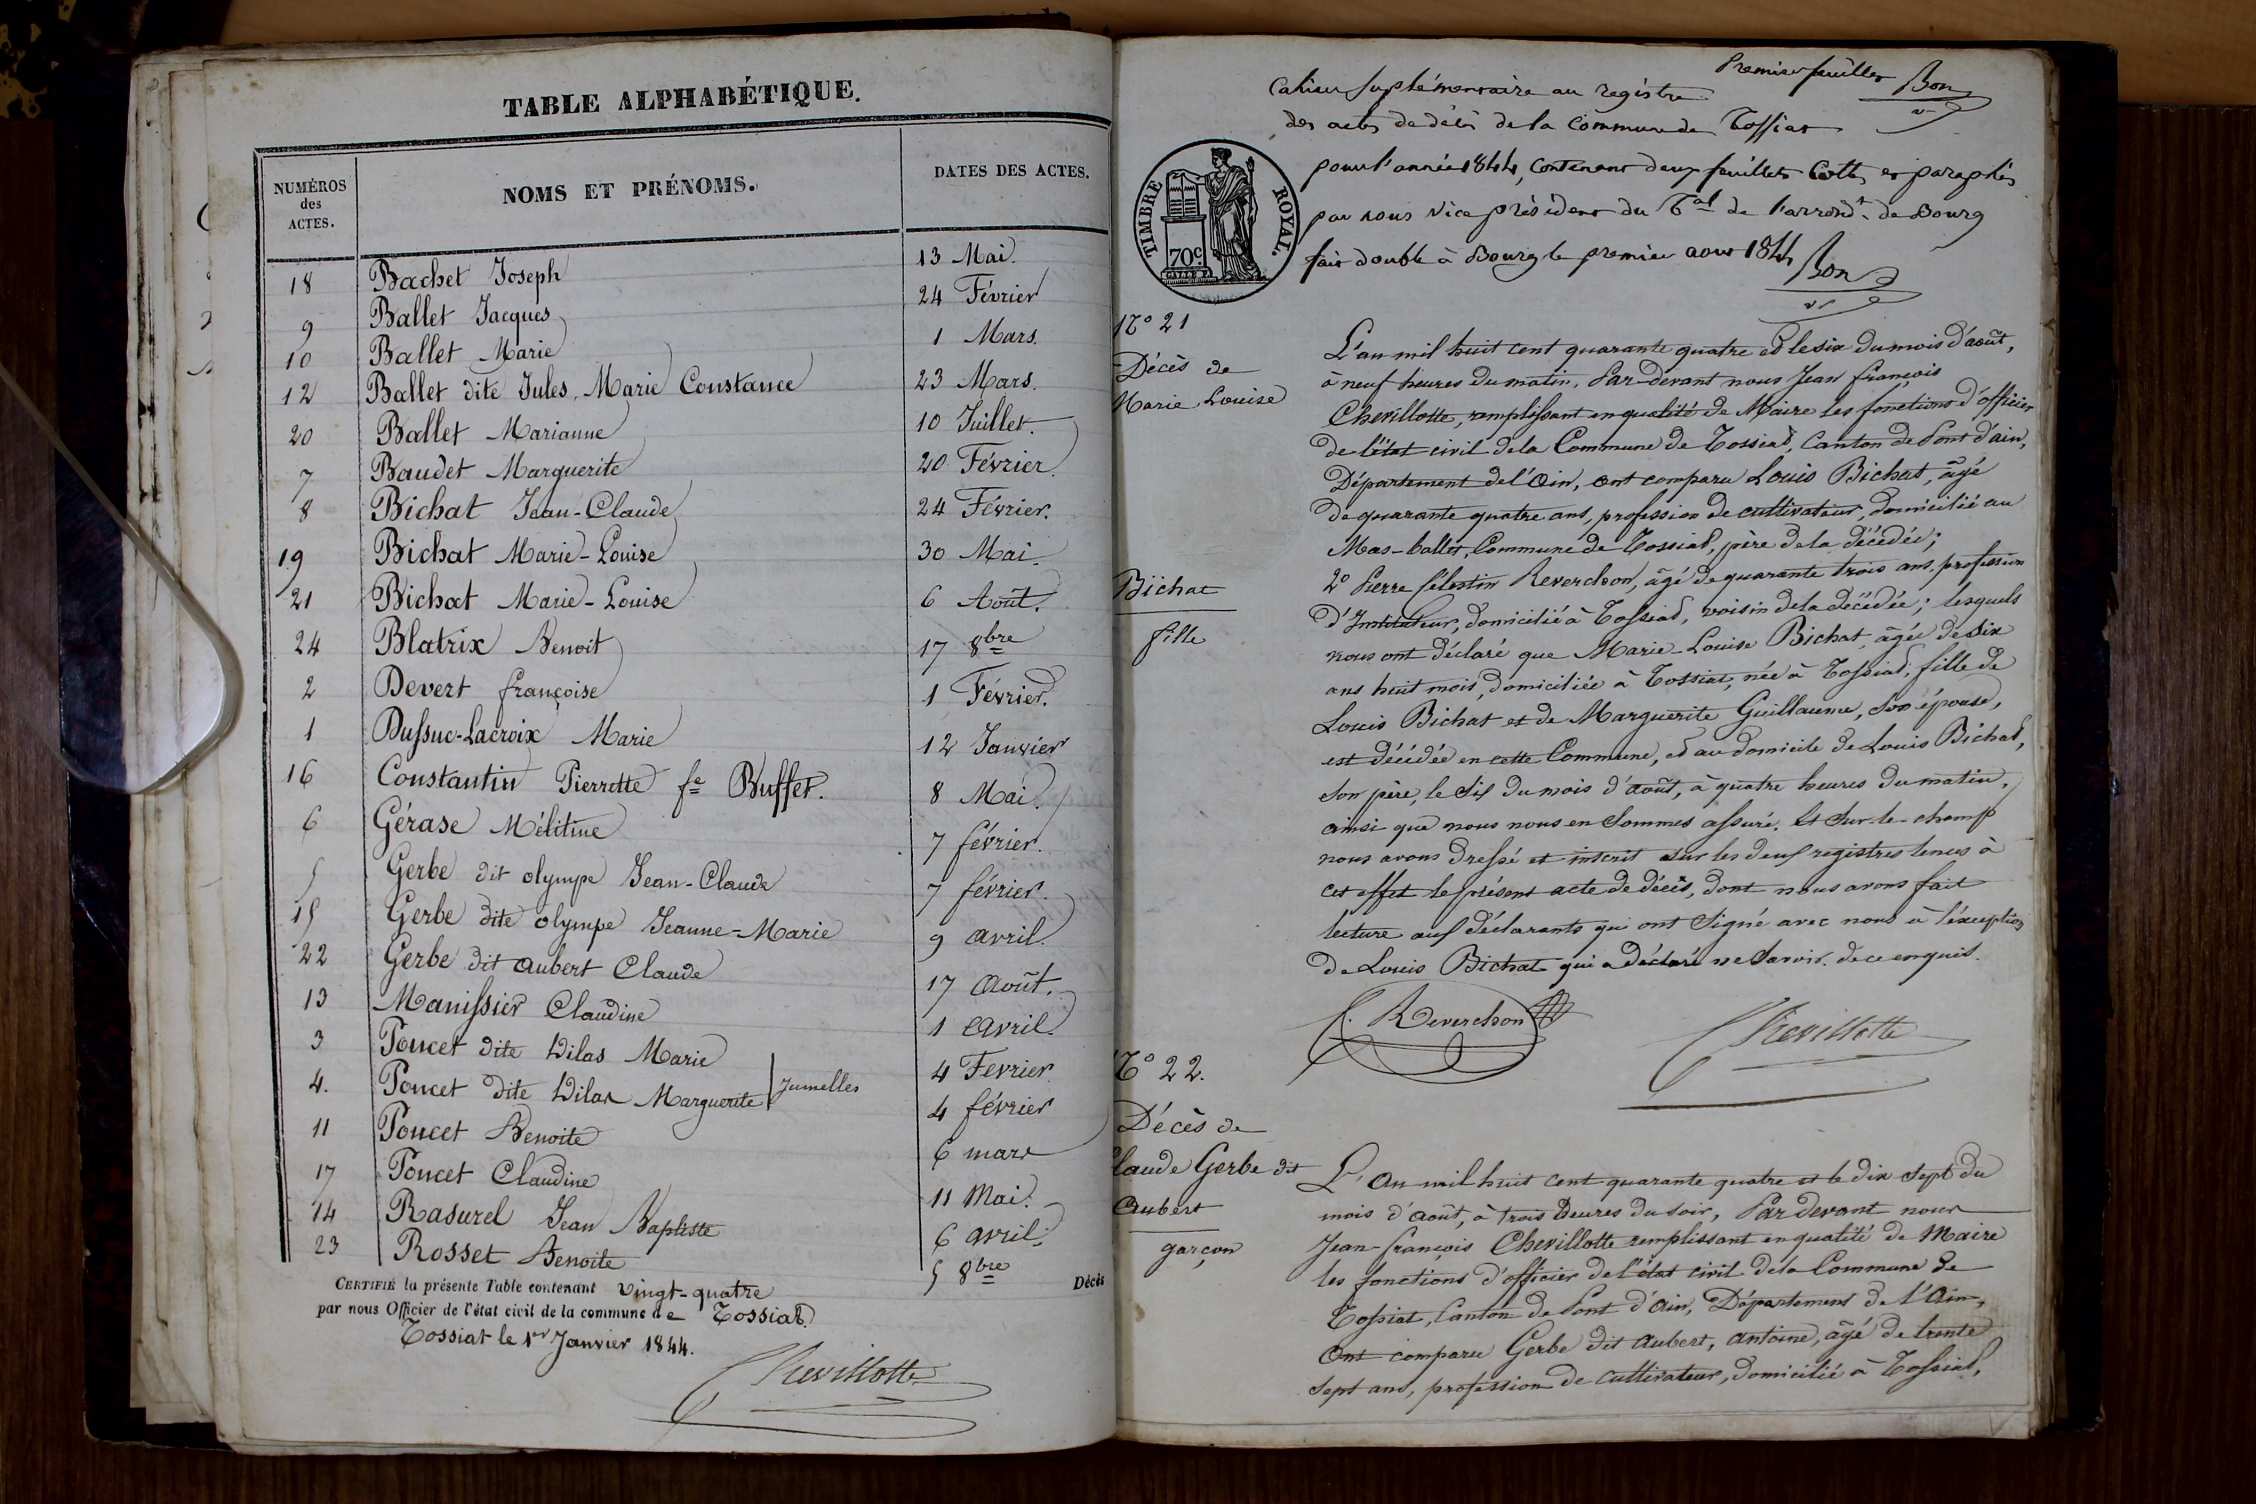 TABLE ALPHABÉTIQUE.
NUMÉROS des ACTES. NOMS ET PRÉNOMS. DATES DES ACTES.
18 Bachet Joseph 13 Mai.
9 Ballet Jacques 24 Février
10 Ballet Marie 1 Mars.
12 Ballet dite Jules, Marie Constance 23 Mars.
20 Ballet Marianne 10 Juillet.
7 Baudet Marguerite 20 Février
8 Bichat Jean-Claude 24 Février.
19 Bichat Marie-Louise 30 Mai.
21 Bichat Marie-Louise 6 Août.
24 Blatrix Benoit 17 8bre
2 Devert françoise 1 Février.
1 Dussuc-Lacroix Marie 12 Janvier
16 Constantin Pierrette fe Buffet. 8 Mai.
6 Gérase Mélitine 7 février.
5 Gerbe dit olympe Jean-Claude 7 février.
15 Gerbe dite olympe Jeanne-Marie 9 avril.
22 Gerbe dit aubert Claude 17 Août.
13 Manissier Claudine 1 Avril.
3 Poncet dite Dilas Marie 4 Fevrier
4. Poncet dite Dilas Marguerite Jumelles 4 février
11 Poncet Benoite 6 mars
17 Poncet Claudine 11 Mai.
14 Rasurel Jean Baptiste 6 avril.
23 Rosset Benoite 5 8bre
CERTIFIÉ la présente Table contenant vingt-quatre Décès
par nous Officier de l'état civil de la commune de Tossiat.
Tossiat le 1er Janvier 1844.
Chevillotte
Premier feuillet Bon
Cahier suplémentaire au registre
des actes de décès de la Commune de Tossiat
pour l'année 1844, Contenant deux feuillets Cottés et paraphés
par nous Vice président du Tal de l'arrondt. de Bourg
fait double à Bourg le premier aout 1844
Bon
TIMBRE ROYAL.
70c.
N° 21
Décès de
Marie Louise
Bichat
fille
L'an mil huit cent quarante quatre et le six du mois d'août,
à neuf heures du matin. Par-devant nous Jean françois
Chevillotte, remplissant en qualité de Maire les fonctions d'officier
de l'état civil de la Commune de Tossiat, Canton de Pont d'ain,
Département de l'Ain, ont comparu Louis Bichat, âgé
de quarante quatre ans, profession de cultivateur, domicilié au
Mas-ballet, Commune de Tossiat, père de la décédée;
2° Pierre Célestin Reverchon, âgé de quarante trois ans, profession
d'Instituteur, domicilié à Tossiat, voisin de la décédée; lesquels
nous ont déclaré que Marie-Louise Bichat, âgée de six
ans huit mois, domiciliée à Tossiat, née à Tossiat, fille de
Louis Bichat et de Marguerite Guillaume, son épouse,
est décédée en cette Commune, et au domicile de Louis Bichat,
son père, le six du mois d'août, à quatre heures du matin,
ainsi que nous nous en sommes assuré. Et sur-le-champ
nous avons dressé et inscrit sur les deux registres tenus à
cet effet le présent acte de décès, dont nous avons fait
lecture aux déclarants qui ont signé avec nous à l'éxception
de Louis Bichat qui a déclaré ne savoir. de ce enquis.
C. Reverchon Chevillotte
N° 22.
Décès de
Claude Gerbe dit
Aubert
garçon
L'an mil huit cent quarante quatre et le dix sept du
mois d'août, à trois heures du soir, Par devant nous
Jean-françois Chevillotte remplissant en qualité de Maire
les fonctions d'officier de l'état civil de la Commune de
Tossiat, Canton de Pont d'Ain, Département de l'Ain,
Ont comparu Gerbe dit Aubert, antoine, âgé de trente
sept ans, profession de cultivateur, domicilié à Tossiat,